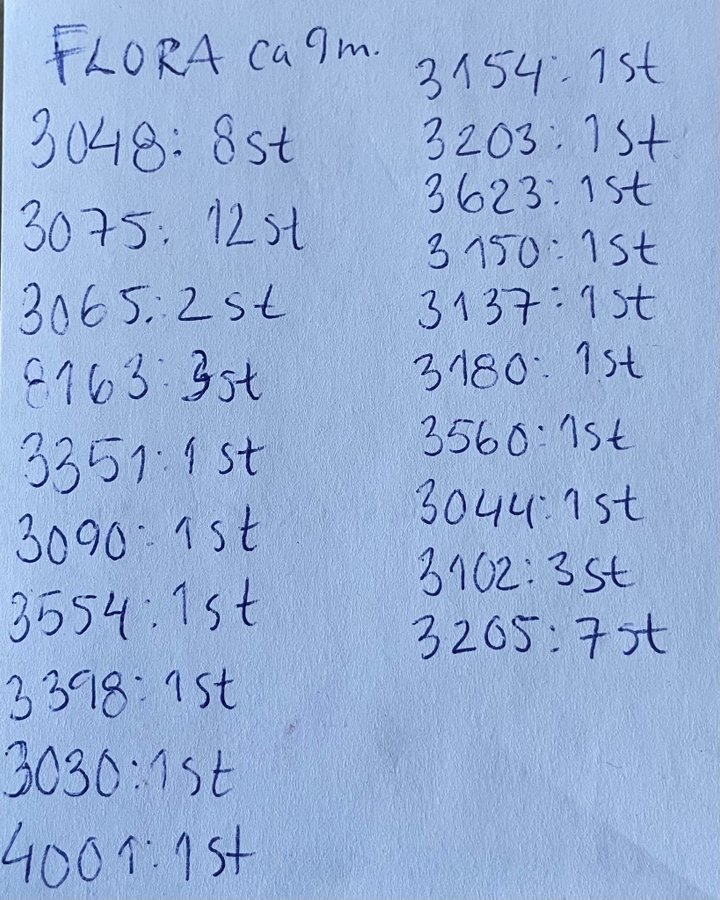 FLORA ca 9m.
3048: 8st
3075: 12st
3065: 2st
8163: 3st
3351: 1st
3090: 1st
3554: 1st
3398: 1st
3030: 1st
4001: 1st
3154: 1st
3203: 1st
3623: 1st
3150: 1st
3137: 1st
3180: 1st
3560: 1st
3044: 1st
3102: 3st
3205: 7st